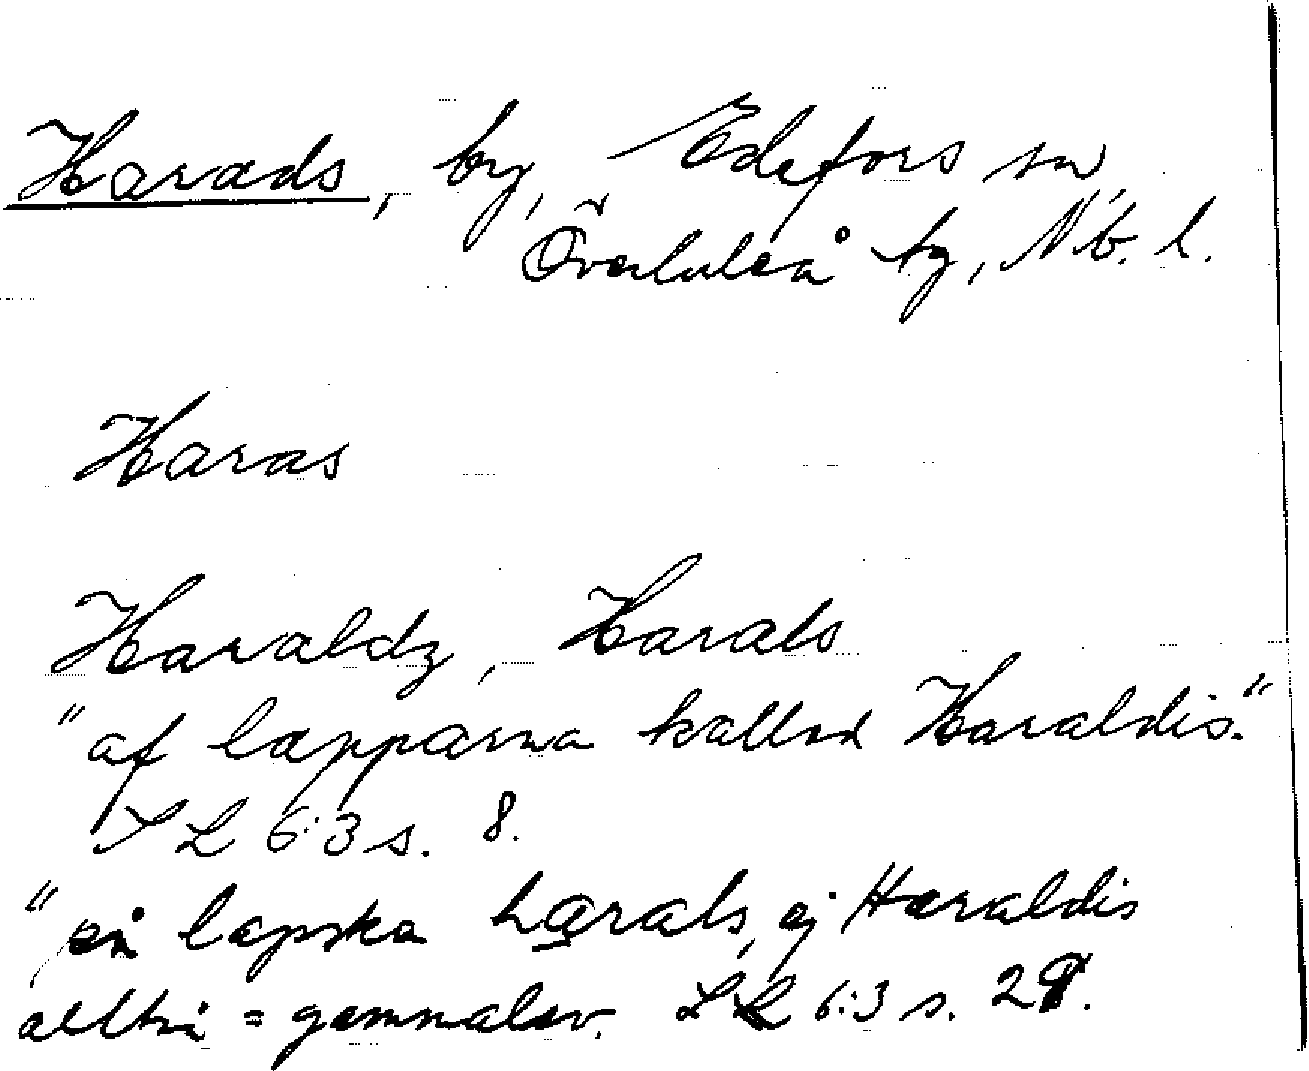 Harads, by, Edefors sn,
Överluleå tg, Nb. l.
Haras
Haraldz, Harals
"af lapparna kallad Haraldis."
S L 6:3 s. 8.
"på lapska harals, ej Haraldis
alltså = gammalsv. S L 6:3 s. 29.